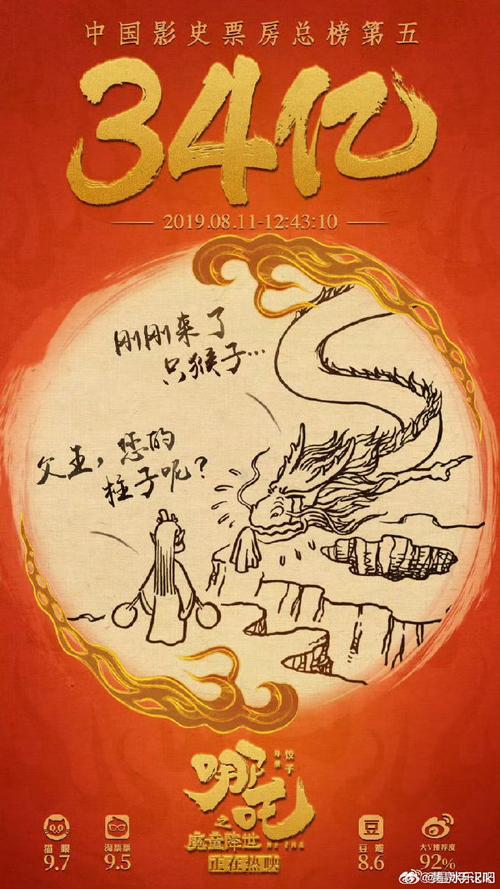 中国影史票房总榜第五
34亿
2019.08.11-12:43:10
刚刚来了
只猴子…
父王，您的
柱子呢？
导演
饺子
哪吒
之
魔童降世
NE ZHA
正在热映
猫眼
9.7
淘票票
9.5
豆瓣
8.6
大V推荐度
92%